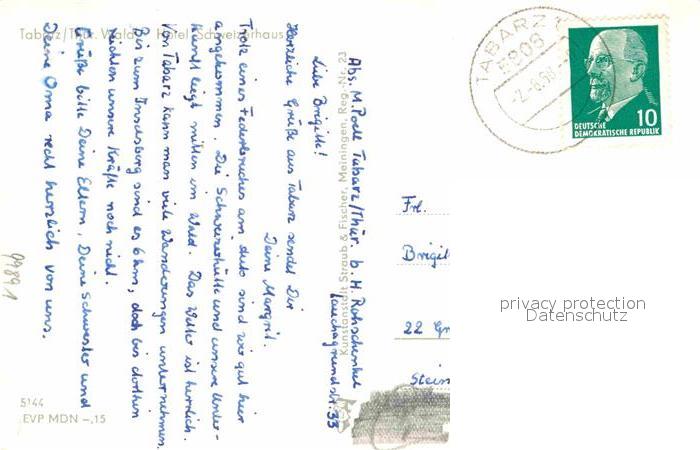 Tabarz/Thür. Wald Hotel Schweizerhaus
Abs. M. Poell Tabarz/Thür. b. H. Rothschenkel
Lauchagrundstr. 33
Kunstanstalt Straub & Fischer, Meiningen, Reg.-Nr. 23
Liebe Brigitte!
Herzliche Grüße aus Tabarz sendet Dir
Deine Margrit.
Trotz eines Federbruches am Auto sind wir gut hier
angekommen. Die Schweizerhütte und unsere Unter-
kunft liegt mitten im Wald. Das Wetter ist herrlich.
Von Tabarz kann man viele Wanderungen unternehmen.
Bis zum Inselsberg sind es 6 km, doch bis dorthin
reichten unsere Kräfte noch nicht.
Grüße bitte Deine Eltern, Deine Schwester und
Deine Oma recht herzlich von uns.
99891
5144
EVP MDN -,15
TABARZ 1
5808
-2.-8.68
10
DEUTSCHE
DEMOKRATISCHE REPUBLIK
Frl.
Brigit
22 Gr
Stein
privacy protection
Datenschutz